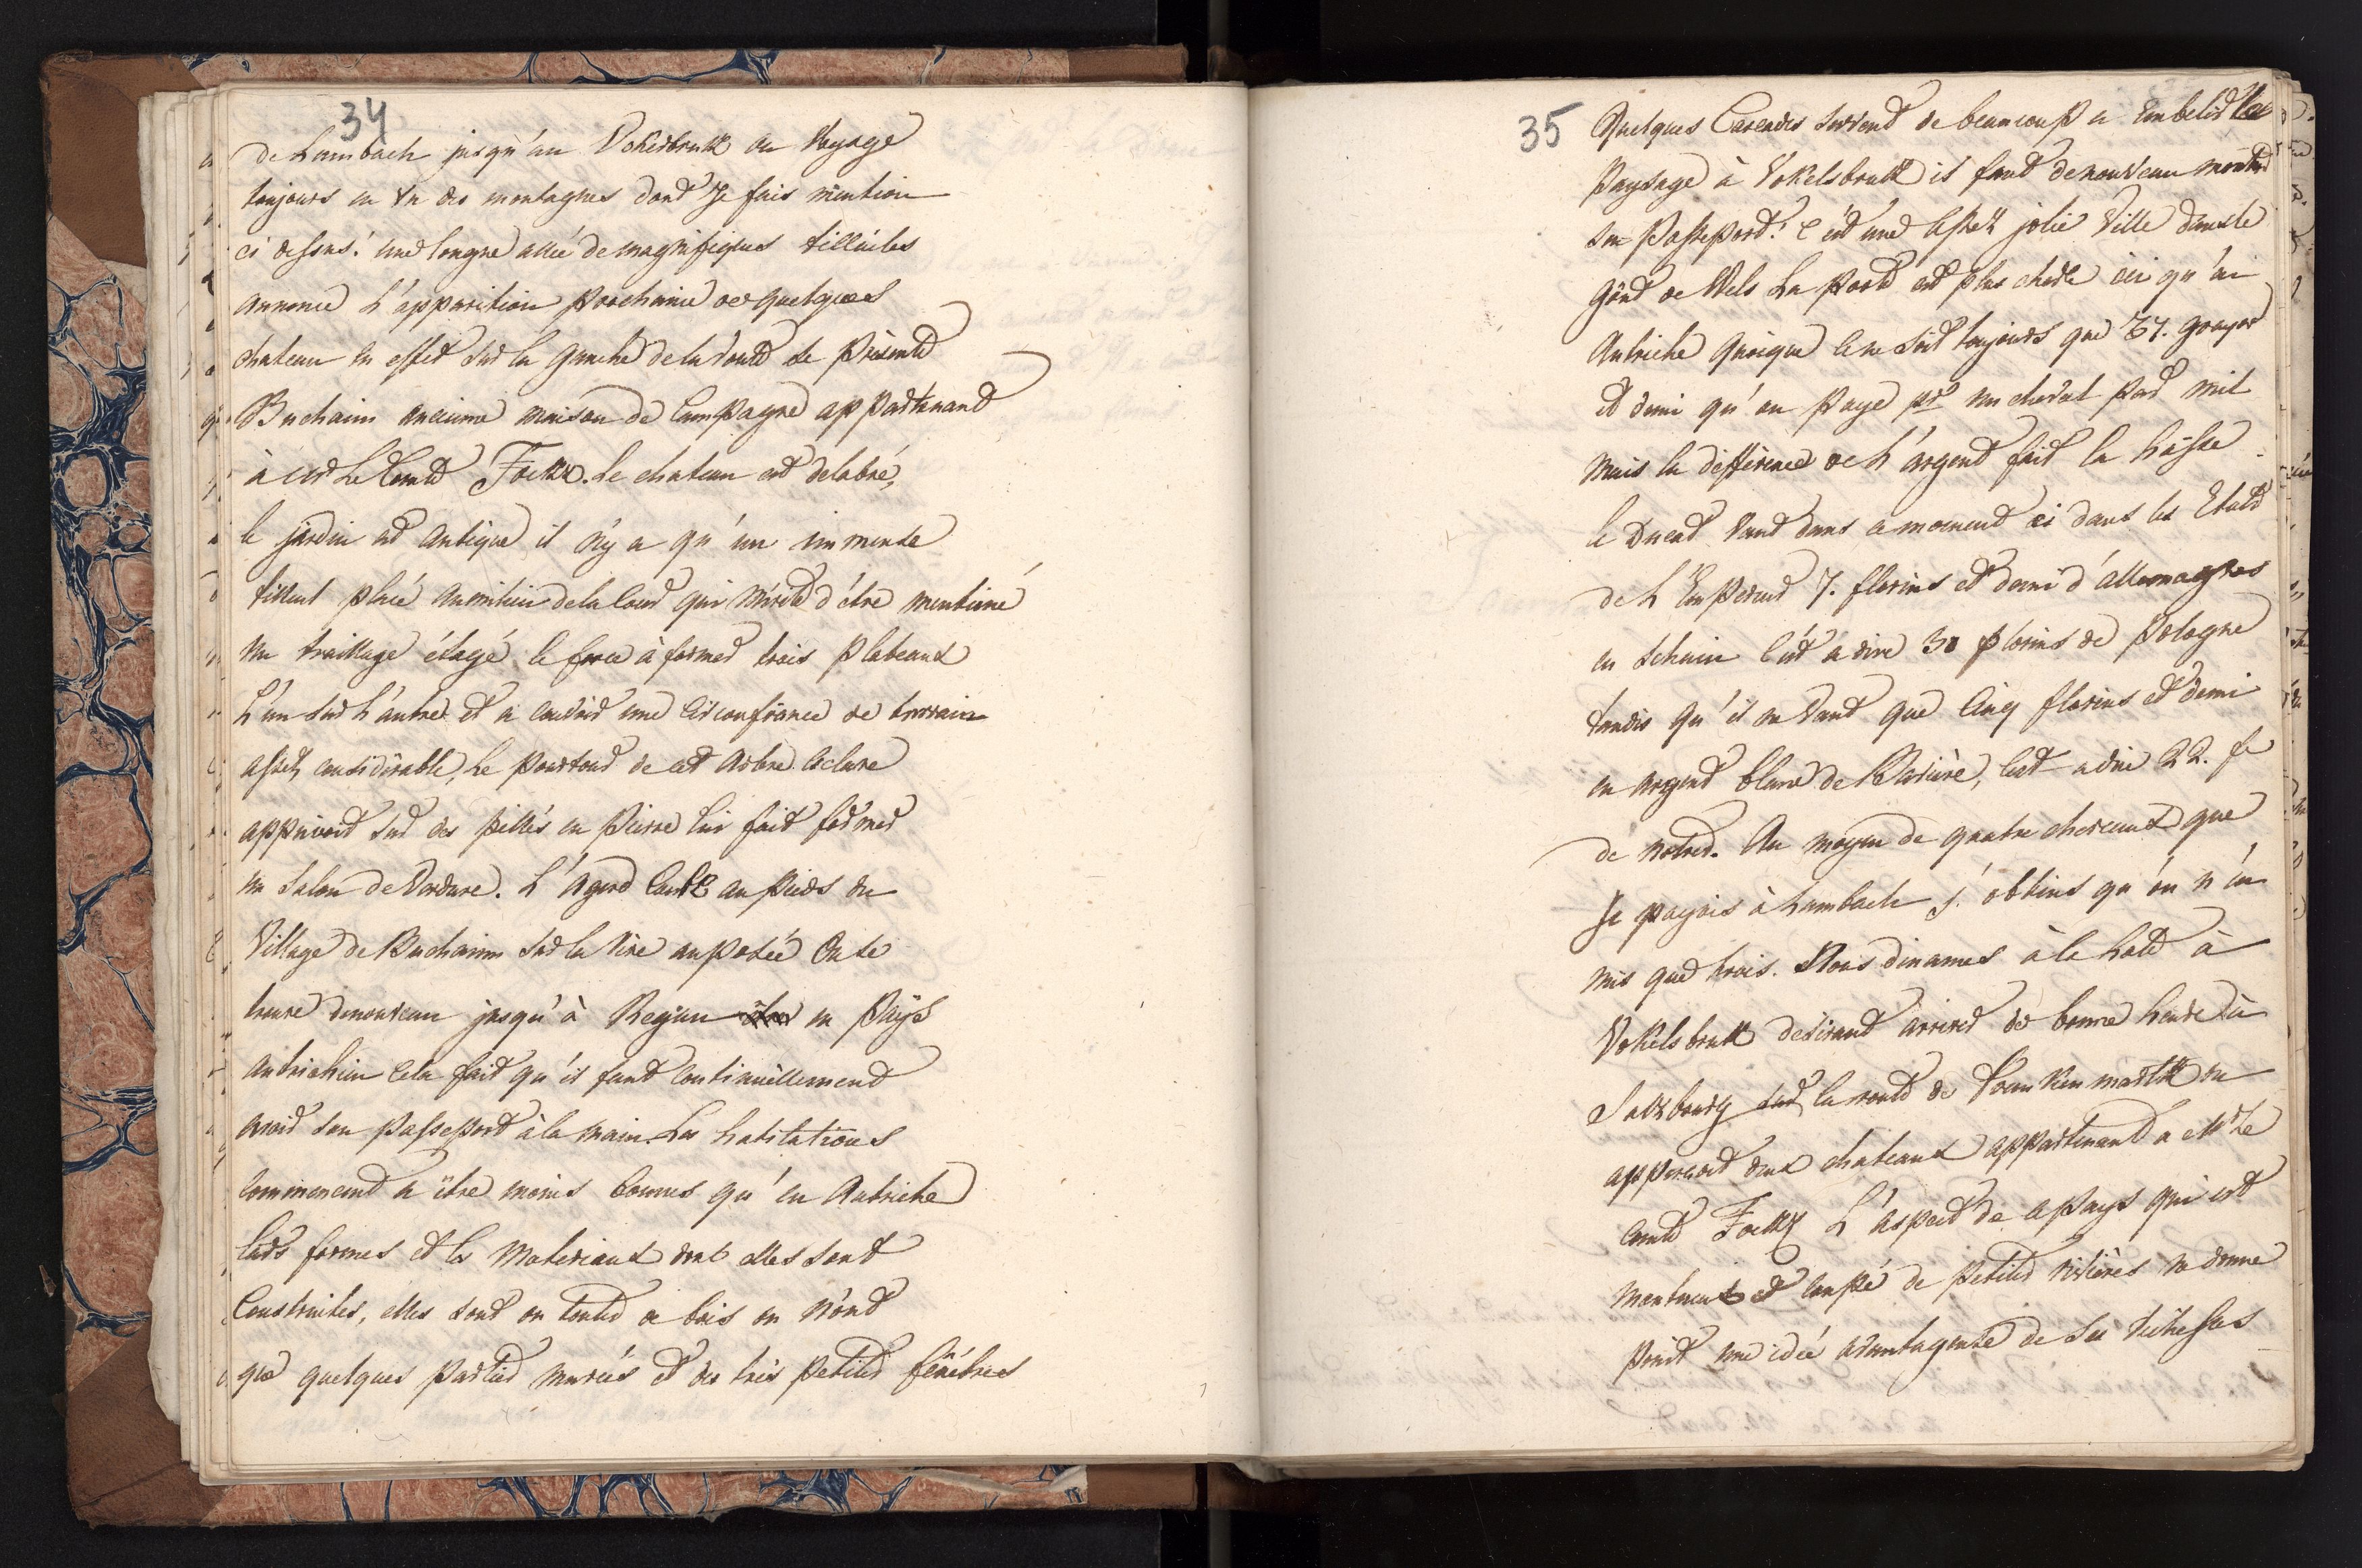 34
de Lambach jusqu'au Vokelsbrukk on Voyage
toujours en vu des montagnes dont Je fais mention
ci dessus. une longue allée de magnifiques tilliules
annonce L'apparition prochaine de quelques
chateau en effet sur la gauche de la route se présente
Buchaim ancienne maison de Campagne appartenant
à Mr Le Comte Fockx. Le chateau est delabré,
le jardin est antique, il n'y a qu'un immense
tilleul placé au milieu de la Cour qui mérite d'être mentioné
un traillage étagé le force à former trois plateaux
L'un sur L'autre et a couvrir une Circonfrance de terrain
assez considérable, Le pourtour de cet arbre
appuiant sur des pilliés en pierre lui fait former
un Salon de Verdure. L'Agerd Coule au pieds du
Village de Buchaim sur la rive auposée On se
trouve denouveau jusqu'à en Païs
Autrichien Cela fait qu'il faut Continuellement
avoir son passeport à la main. Les habitations
Commencent a être moins bonnes qu'en Autriche
leurs formes et les Materiaux dont elles sont
Construites, elles sont ou toutes de bois ou n'ont
que quelques parties murées et des très petites fenêtres
35
Quelques Cascades servent de beaucoup a Embelir le
Paysage à Vokelsbrukk il faut denouveau montrer
son Passeport. C'est une assez jolie Ville dans le
goût de Wels La poste est plus chère ici qu'en
Autriche quoique ce ne soit toujours que 37. gouyar
et demi qu'on paye pr un cheval par mil
mais la différence de L'argent fait la hausse
le Ducat vaut dans ce moment ci dans les Etats
de L'Empereur 7. florins et demi d'allemagnes
en schain C'est a dire 30 florins de Pologne
tandis qu'il ne vaut que Cinq florins et demi
en argent blanc de Bavière, C'est a dire 22. fl
de notres. Au moyen de quatre chevaux que
Je payais à Lambach j'obtins qu'on n'en
mis que trois. Nous dinames à la hate à
Vokelsbrukk desirant arriver de bonne heure à
Salzbourg sur la route de Franken markt on
apperçoit deux chateaux appartenant a Mr Le
Comte Fockx L'aspect de ce pays qui est
montueux et coupé de petites rivières ne donne
point une idée avantageuse de sa richesses